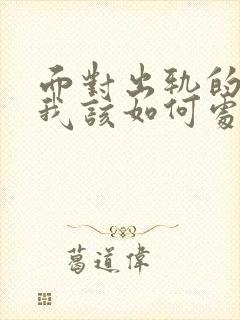 面對出軌的
我該如何處
葛道偉